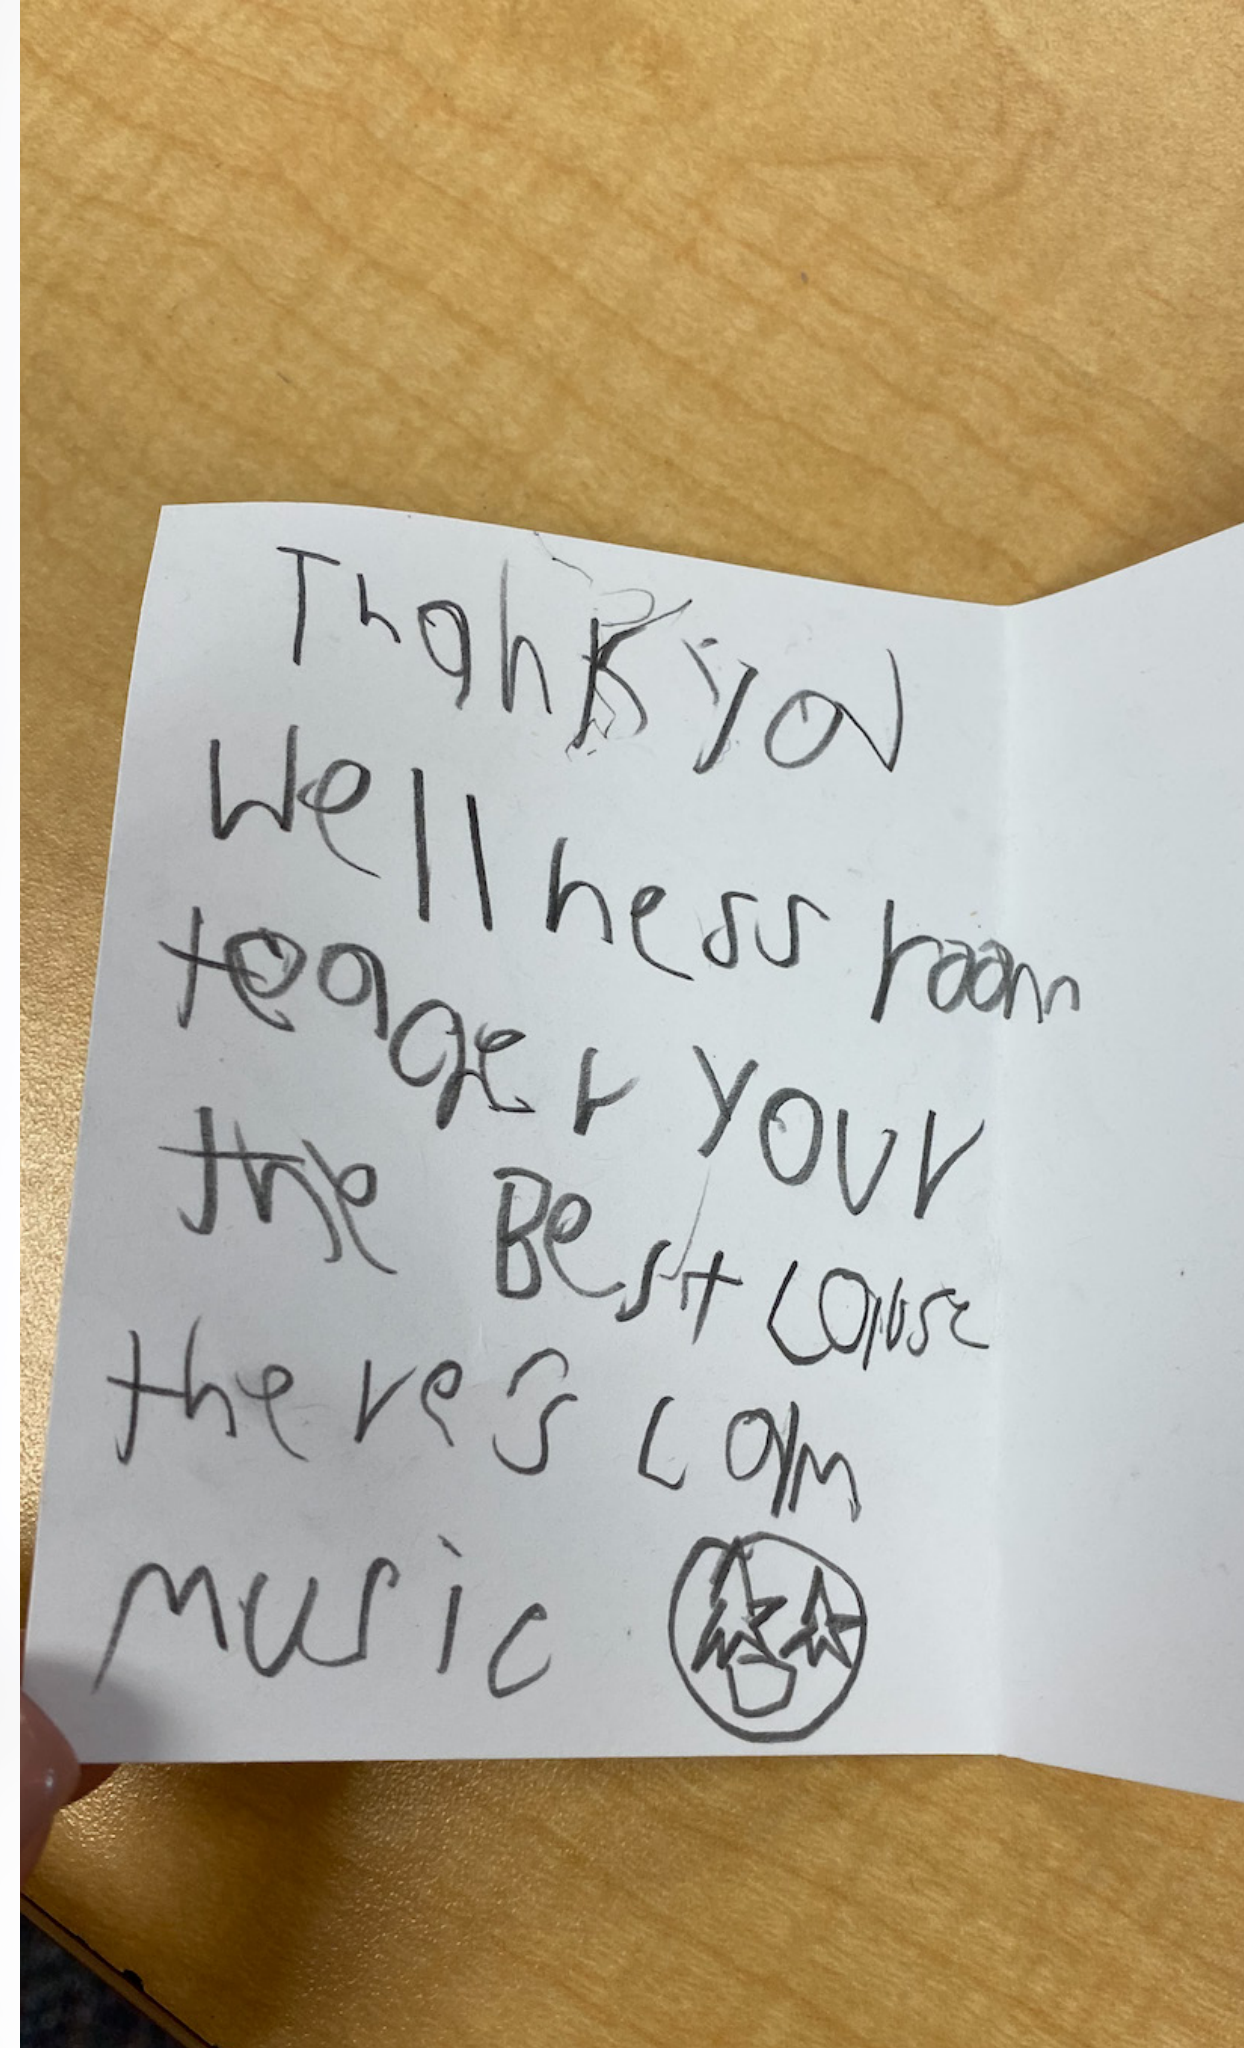 Thank you
Wellness room
teager your
the Best cause
there's calm
music